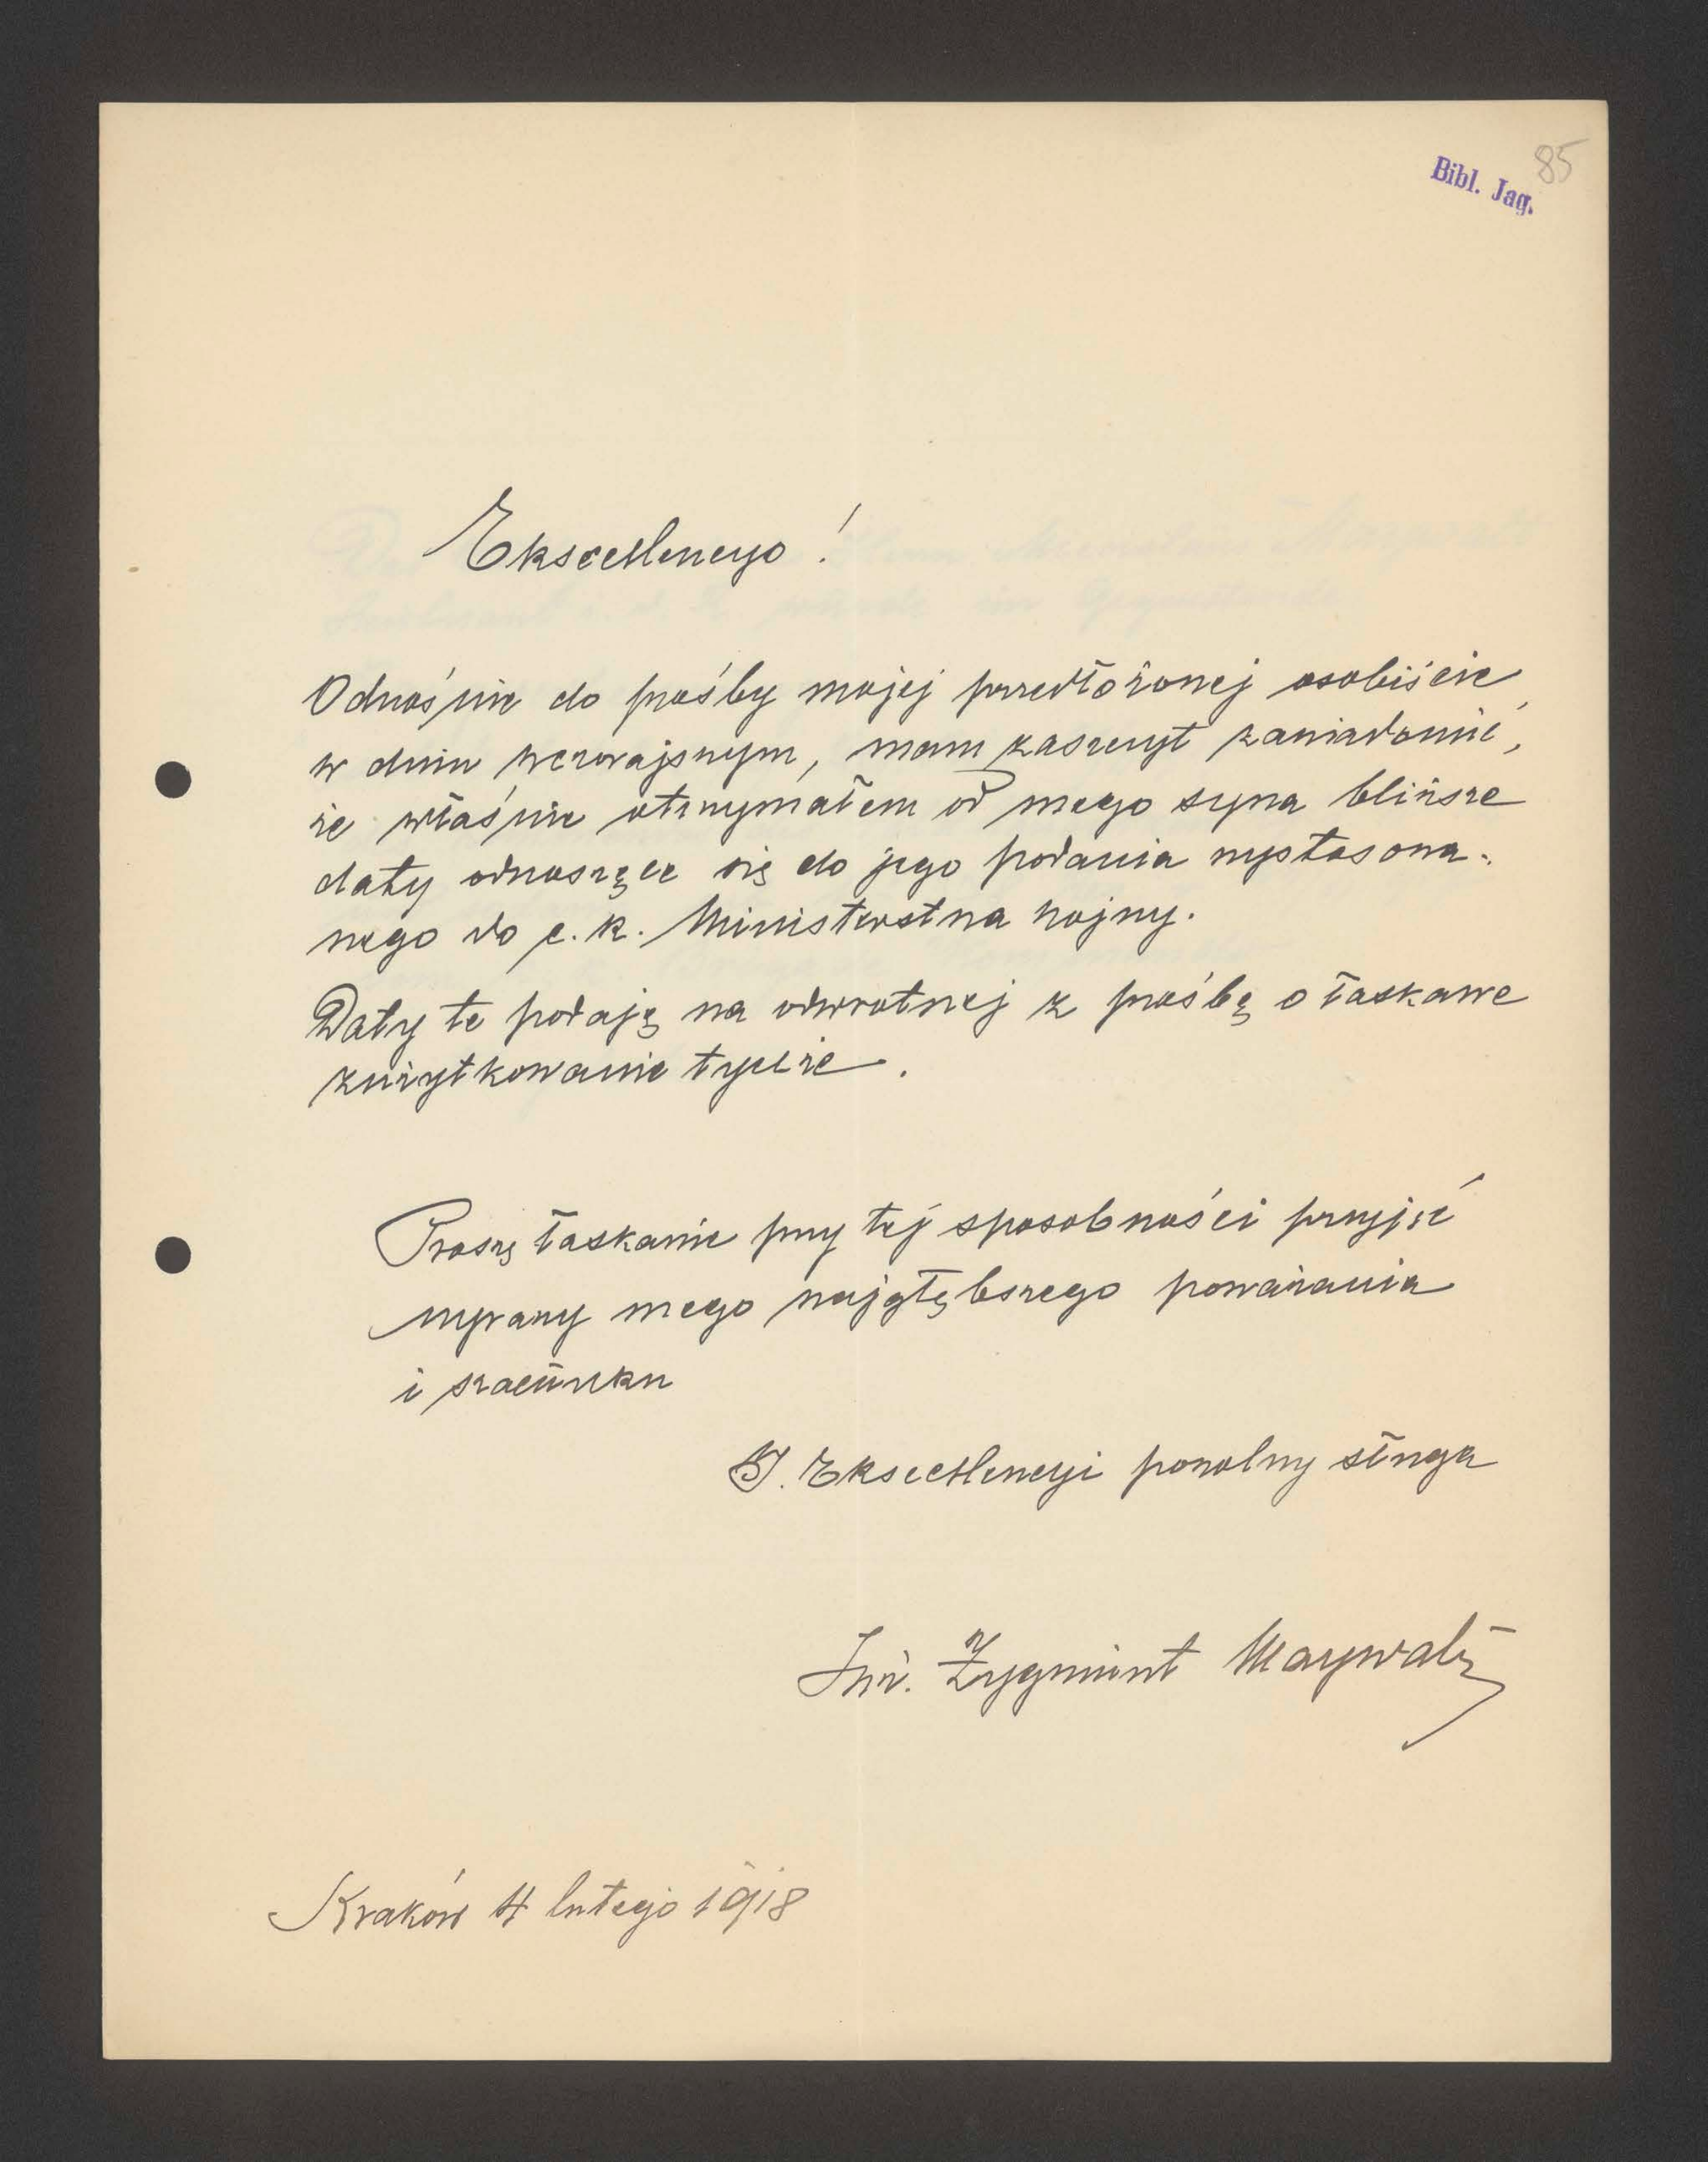 85
Bibl. Jag.
Ekscellencyo!
Odnośnie do prośby mojej przedłożonej osobiście
w dniu wczorajszym, mam zaszczyt zawiadomić,
że właśnie otrzymałem od mego syna bliższe
daty odnoszące się do jego podania wystosowa-
nego do c. k. Ministerstwa wojny.
Daty te podaję na odwrotnej z prośbą o łaskawe
zużytkowanie tychże.
Proszę łaskawie przy tej sposobności przyjąć
wyrazy mego najgłębszego poważania
i szacunku
J. Ekscellencyi powolny sługa
Inż. Zygmunt Maywald
Kraków 4 lutego 1918